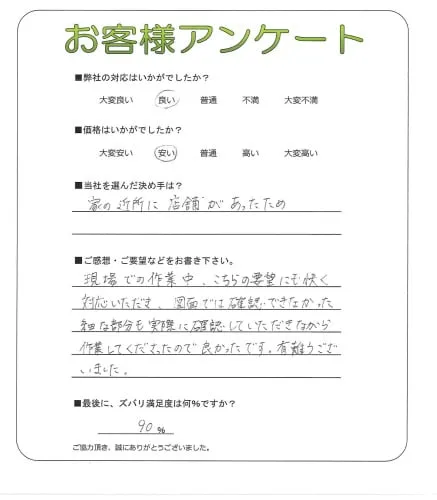 お客様アンケート
■弊社の対応はいかがでしたか？
大変良い 良い 普通 不満 大変不満
■価格はいかがでしたか？
大変安い 安い 普通 高い 大変高い
■当社を選んだ決め手は？
家の近所に店舗があったため
■ご感想・ご要望などをお書き下さい。
現場での作業中、こちらの要望にも快く
対応いただき、図面では確認できなかった
細な部分も実際に確認していただきながら
作業してくださったので良かったです。有難うござ
いました。
■最後に、ズバリ満足度は何%ですか？
90%
ご協力頂き、誠にありがとうございました。